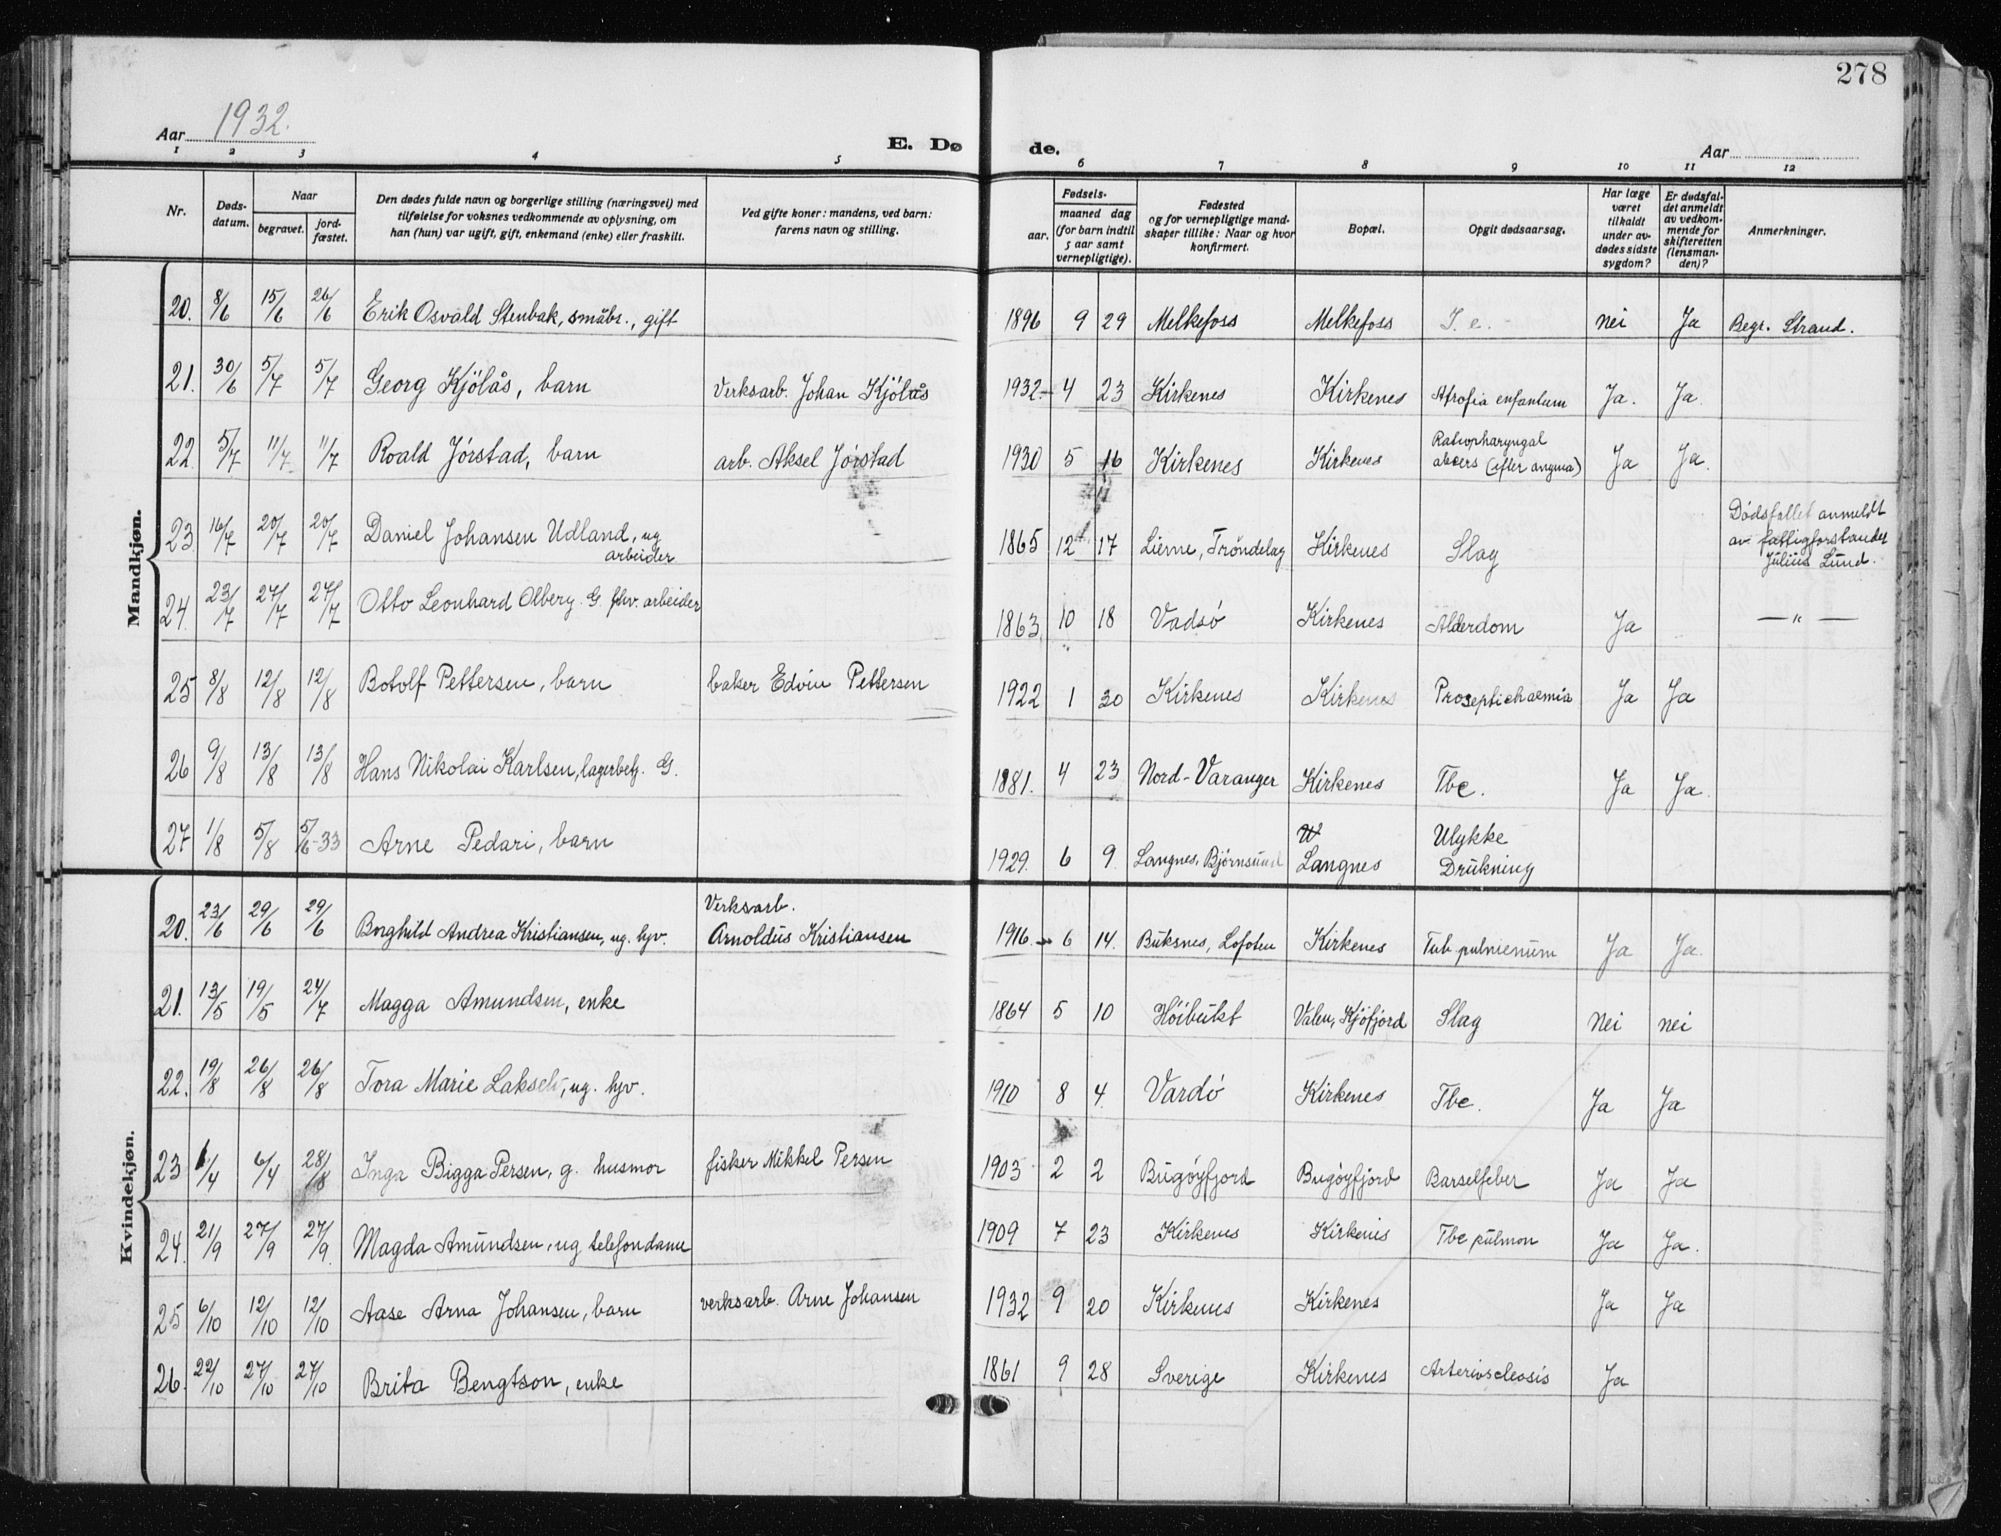 278
Aar 1932.
E. Dø de.
Aar
1 2 3 4 5 6 7 8 9 10 11 12
Nr. | Dødsdatum. | Naar begravet. | jordfæstet. | Den dødes fulde navn og borgerlige stilling (næringsvei) med tilføielse for voksnes vedkommende av oplysning, om han (hun) var ugift, gift, enkemand (enke) eller fraskilt. | Ved gifte koner: mandens, ved barn: farens navn og stilling. | Fødsels- aar. | maaned dag (for barn indtil 5 aar samt vernepligtige). | Fødested og for vernepligtige mandskaper tillike: Naar og hvor konfirmert. | Bopæl. | Opgit dødsaarsag. | Har læge været tilkaldt under avdødes sidste sygdom? | Er dødsfaldet anmeldt av vedkommende for skifteretten (lensmanden)? | Anmerkninger.
Mandkjøn.
20. 8/6 15/6 26/6 Erik Osvald Stenbak, småbr., gift 1896 9 29 Melkefoss Melkefoss I. e. - nei Ja Begr. Strand.
21. 30/6 5/7 5/7 Georg Kjölås, barn Verksarb. Johan Kjölås 1932 - 4 23 Kirkenes Kirkenes Atrofia enfantum Ja. Ja
22. 5/7 11/7 11/7 Roald Jørstad, barn arb. Aksel Jørstad 1930 5 16 Kirkenes Kirkenes
abcers (efter angina) Ja Ja.
23. 16/7 20/7 20/7 Daniel Johansen Udland, ug
arbeider 1865 12 17 Lierne, Tröndelag Kirkenes Slag Dødsfallet anmeldt
av fattigforstander
Julius Lund.
24. 23/7 27/7 27/7 Otto Leonhard Olberg. G. fhv. arbeider 1863 10 18 Vadsö Kirkenes Alderdom Ja — " —
25 8/8 12/8 12/8 Botolf Pettersen, barn baker Edvin Pettersen 1922 1 30 Kirkenes Kirkenes Proseptichaemia Ja Ja
26 9/8 13/8 13/8 Hans Nikolai Karlsen, lagerbetj. G. 1881. 4 23 Nord-Varanger Kirkenes Tbc. Ja Ja.
27 1/8 5/8 5/6-33 Arne Pedari, barn 1929. 6 9. Langnes, Bjørnsund Langnes Ulykke
Drukning
Kvindekjøn.
20. 23/6 29/6 29/6 Borghild Andrea Kristiansen, ug. hjv. Verksarb.
Arnoldus Kristiansen 1916. - 6 14. Buksnes, Lofoten Kirkenes Tub. pulmenum Ja Ja.
21. 13/5 19/5 24/7 Magga Amundsen, enke 1864 5 10 Höibukt Valen, Kjöfjord Slag Nei nei
22. 19/8 26/8 26/8 Tora Marie ug. hjv. 1910 8 4. Vardö Kirkenes Tbc. Ja Ja
23 1/4 6/4 28/8 Inga Bigga Persen, g. husmor fisker Mikkel Persen 1903 2 2 Bugöyfjord Bugöyfjord Barselfeber Ja Ja
24. 21/9 27/9 27/9. Magda Amundsen, ug telefondame 1909 7 23 Kirkenes Kirkenes Tbc pulmon Ja Ja.
25 6/10 12/10 12/10 Aase Arna Johansen, barn verksarb. Arne Johansen 1932 9 20 Kirkenes Kirkenes Ja Ja
26. 22/10 27/10 27/10 Brita Bengtson, enke 1861 9 28 Sverige Kirkenes Arterioscleosis Ja